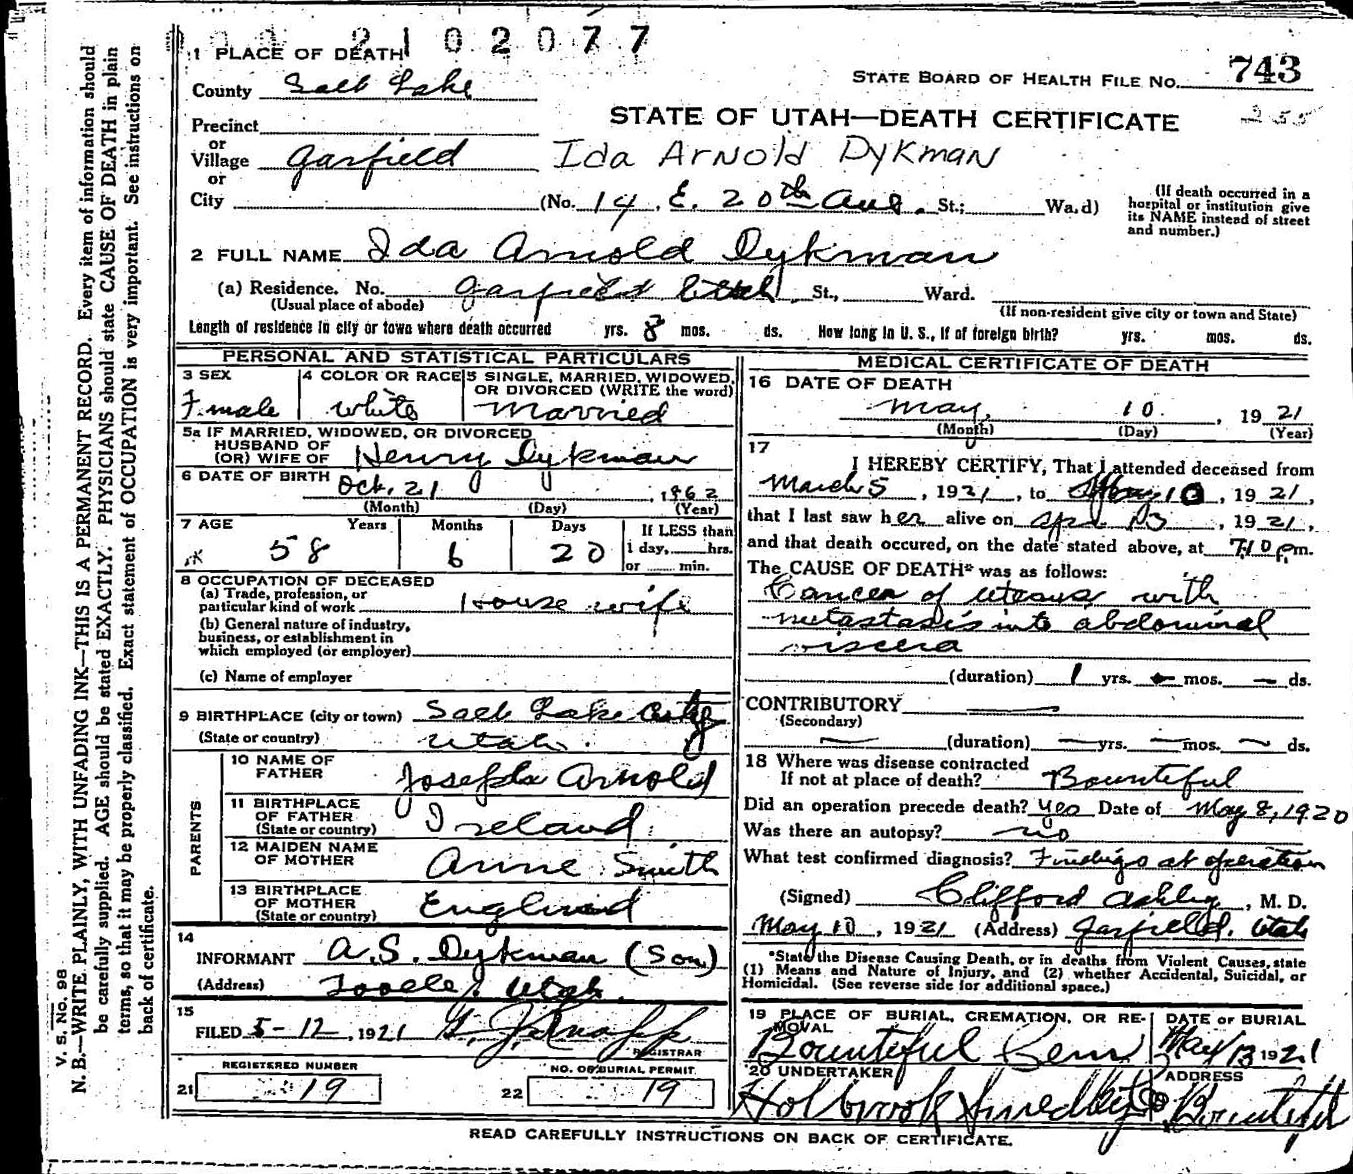 2102077
1 PLACE OF DEATH
County Salt Lake
STATE BOARD OF HEALTH FILE No. 743
255
Precinct
or
Village Garfield
or
City
STATE OF UTAH—DEATH CERTIFICATE
Ida Arnold Dykman
(No. 14 E. 20th Ave. St.; Ward)
(If death occurred in a
hospital or institution give
its NAME instead of street
and number.)
2 FULL NAME Ida Arnold Dykman
(a) Residence. No. Garfield Utah St., Ward.
(Usual place of abode)
(If non-resident give city or town and State)
Length of residence in city or town where death occurred yrs. 8 mos. ds. How long in U. S., if of foreign birth? yrs. mos. ds.
PERSONAL AND STATISTICAL PARTICULARS
3 SEX
Female
4 COLOR OR RACE
White
5 SINGLE, MARRIED, WIDOWED,
OR DIVORCED (WRITE the word)
Married
5a IF MARRIED, WIDOWED, OR DIVORCED
HUSBAND OF
(OR) WIFE OF Henry Dykman
6 DATE OF BIRTH Oct. 21, 1862
(Month) (Day) (Year)
7 AGE Years Months Days If LESS than
1 day, hrs.
or min.
58 6 20
8 OCCUPATION OF DECEASED
(a) Trade, profession, or
particular kind of work House wife
(b) General nature of industry,
business, or establishment in
which employed (or employer)
(c) Name of employer
9 BIRTHPLACE (city or town) Salt Lake City
(State or country) Utah.
PARENTS
10 NAME OF
FATHER Joseph Arnold
11 BIRTHPLACE
OF FATHER
(State or country) Ireland
12 MAIDEN NAME
OF MOTHER Anne Smith
13 BIRTHPLACE
OF MOTHER
(State or country) England
14
INFORMANT A.S. Dykman (Son)
(Address) Tooele, Utah.
15
FILED 5-12, 1921
REGISTRAR
REGISTERED NUMBER
21 19
NO. OF BURIAL PERMIT
22 19
MEDICAL CERTIFICATE OF DEATH
16 DATE OF DEATH
May, 10, 1921
(Month) (Day) (Year)
17
I HEREBY CERTIFY, That I attended deceased from
March 5, 1921, to May 10, 1921,
that I last saw her alive on Apr, 1921,
and that death occured, on the date stated above, at 7:10 pm.
The CAUSE OF DEATH* was as follows:
Cancer of uterus, with
metastasis into abdominal
viscera
(duration) 1 yrs. - mos. - ds.
CONTRIBUTORY —
(Secondary)
— (duration) — yrs. — mos. — ds.
18 Where was disease contracted
If not at place of death? Bountiful
Did an operation precede death? Yes Date of May 8, 1920
Was there an autopsy? no
What test confirmed diagnosis? Findings at operation
(Signed) Clifford Ashby, M. D.
May 10, 1921 (Address) Garfield, Utah
*State the Disease Causing Death, or in deaths from Violent Causes, state
(1) Means and Nature of Injury, and (2) whether Accidental, Suicidal, or
Homicidal. (See reverse side for additional space.)
19 PLACE OF BURIAL, CREMATION, OR RE-
MOVAL
Bountiful Cem
DATE OF BURIAL
May 13 1921
20 UNDERTAKER
Holbrook
ADDRESS
Bountiful
READ CAREFULLY INSTRUCTIONS ON BACK OF CERTIFICATE.
V. S. No. 98
N. B.—WRITE PLAINLY, WITH UNFADING INK—THIS IS A PERMANENT RECORD. Every item of information should
be carefully supplied. AGE should be stated EXACTLY. PHYSICIANS should state CAUSE OF DEATH in plain
terms, so that it may be properly classified. Exact statement of OCCUPATION is very important. See instructions on
back of certificate.